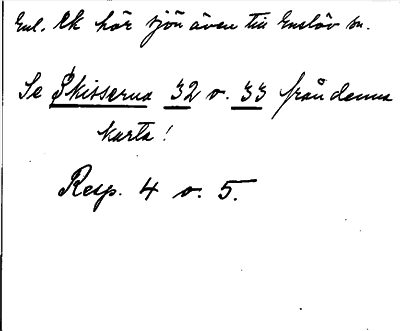 Enl. Ek hör sjön även till Enslöv sn.
Se Skisserna 32 o. 33 från denna
karta!
Resp. 4 o. 5.